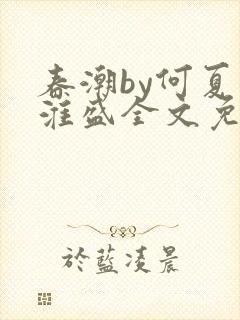 春潮by何夏
淮盛全文免
於蓝凌晨